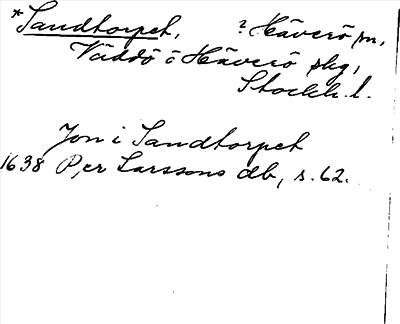 *Sandtorpet, ? Häverö sn,
Väddö o Häverö skg,
Stockh. l.
Jon i Sandtorpet
1638 Per Larssons db, s. 62.